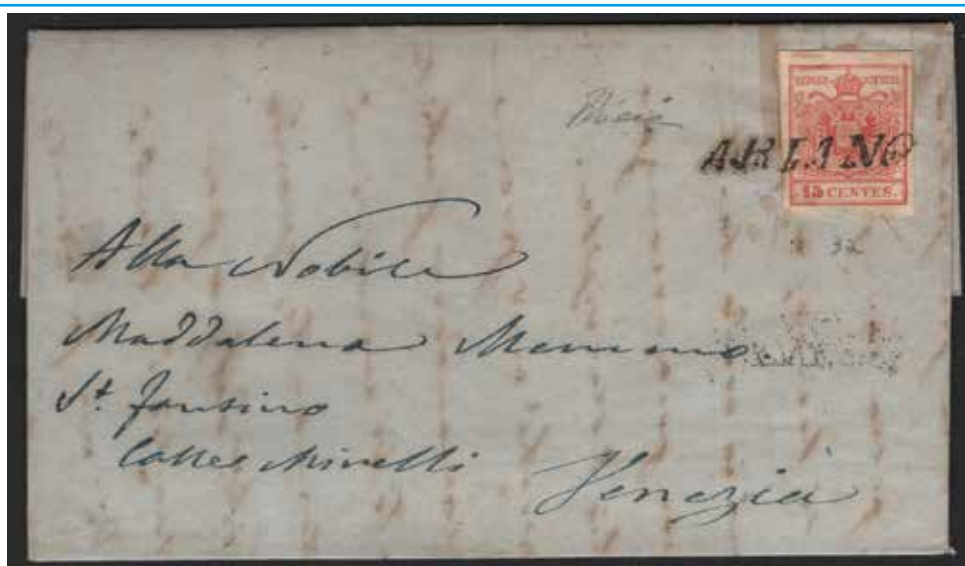 ARIANO
15 CENTES.
32
Alla Nobile
Maddalena Memmo
St. Fantino
Calle Minelli
Venezia